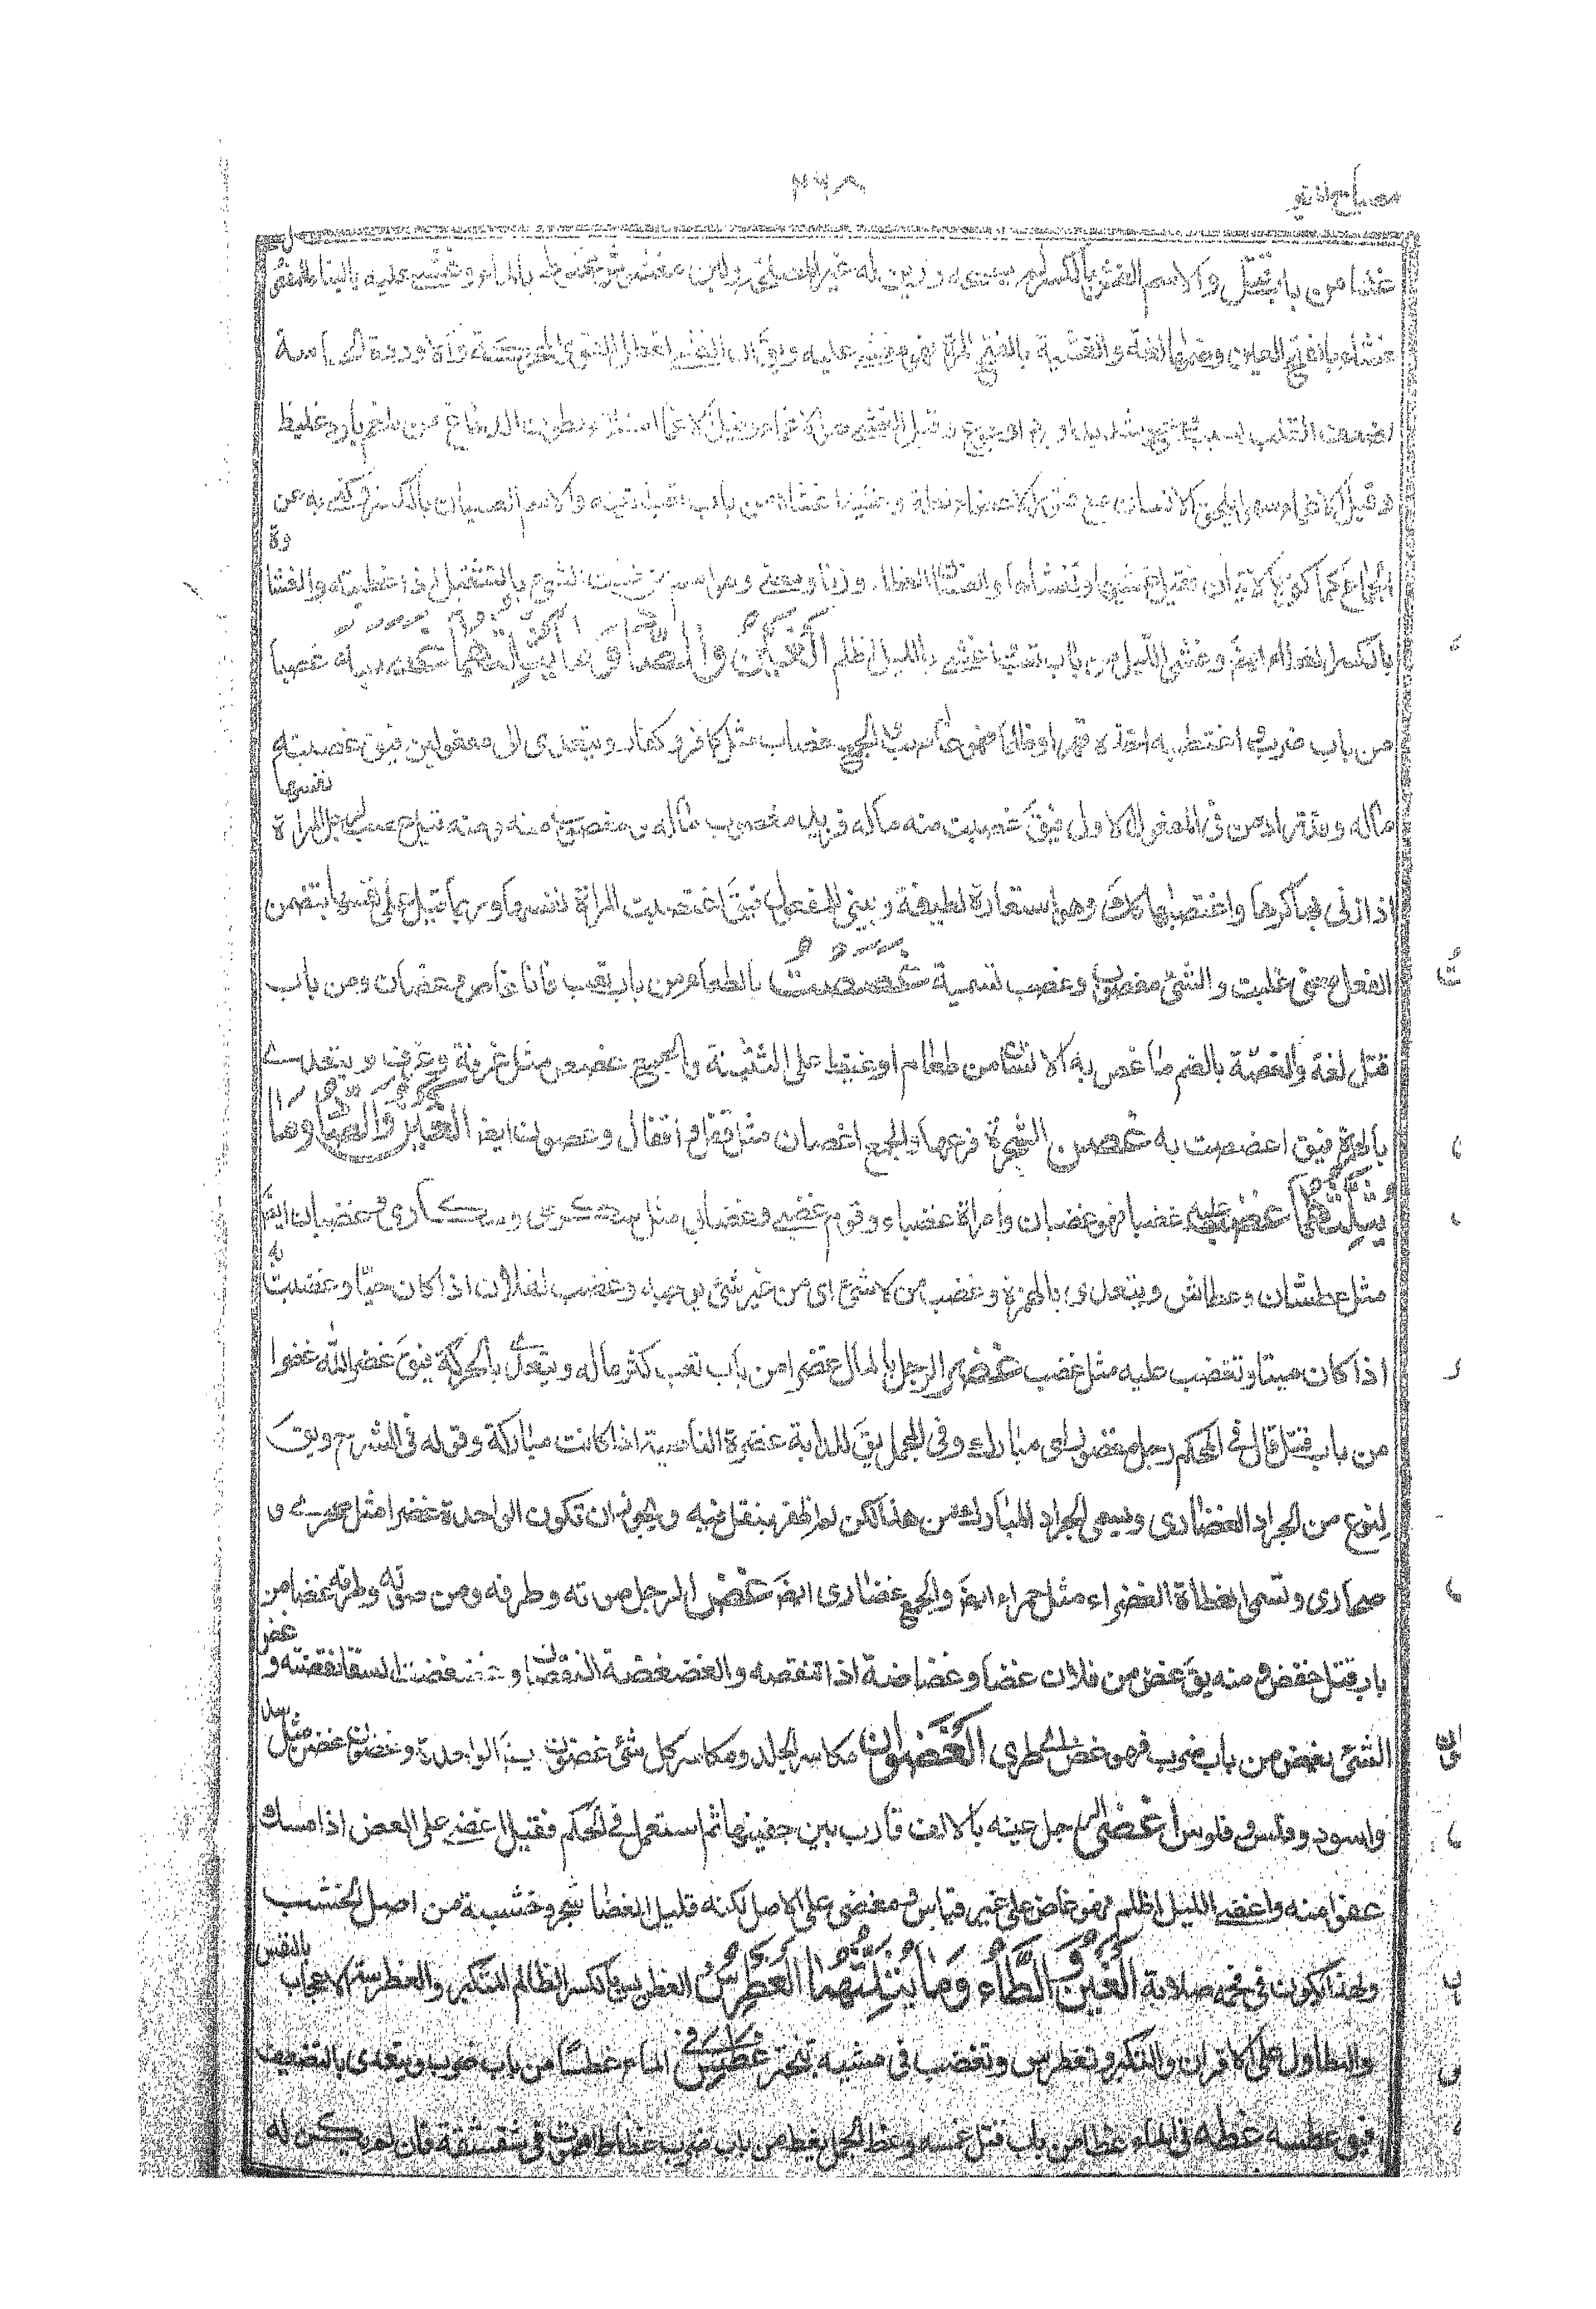 مصباح المنير
٣٦٨
غشا من باب قتل والاسم الغش بالكسر لم ينصحه وزين له غير المصلحة ولبن مغشوش مخلوط بالماء وغشي عليه بالبناء للمفعول
غشيا بفتح الغين وضمها لغة والغشية بالفتح المرة فهو مغشي عليه ويق ان الغشي تعطل القوى المحركة والاوردة الحساسة
لضعف القلب بسبب وجع شديد او برد او جوع وقيل الغشي هو الاغماء وقيل الاغماء امتلاء بطون الدماغ من بلغم بارد غليظ
وقيل الاغماء سهو يلحق الانسان مع فتور الاعضاء لعلة وغشيته اغشاه من باب تعب اتيته والاسم الغشيان بالكسر وكني به عن
الجماع كما كني بالاتيان فقيل غشيها وتغشاها والغشاء الغطاء وزنا ومعنى وهو اسم من غشيت الشيء بالتثقيل اذا غطيته والغشاوة
بالكسر الغطاء ايضا وغشي الليل من باب تعب اغشى بالليل اظلم الغين والصاد وما يثلثهما غصبه غصبا
من باب ضرب واغتصبه اخذه قهرا وظلما فهو غاصب والجمع غصاب مثل كافر وكفار ويتعدى الى مفعولين فيق غصبته
ماله وقد تزاد من في المفعول الاول فيق غصبت منه ماله فزيد مغصوب ماله ومغصوب منه ومنه قيل غصب الرجل المراة نفسها
اذا زنى بها كرها واغتصبها كذلك وهو استعارة لطيفة ويبنى للمفعول فيق اغتصبت المراة نفسها وربما قيل على نفسها بتضمن
الفعل معنى غلبت والشئ مغصوب وغصب تسمية غصصت بالطعام من باب تعب فانا غاص وغصان ومن باب
قتل لغة والغصة بالضم ما غص به الانسان من طعام او غيظ على التشبيه والجمع غصص مثل غرفة وغرف ويتعدى
بالهمزة فيق اغصصت به غصن الشجرة فرعها والجمع اغصان مثل قفل واقفال وغصون ايضا الغين والضاد وما
يثلثهما غضب عليه غضبا فهو غضبان وامراة غضباء وقوم غضبى وغضابى مثل سكرى وسكارى وغضبان ايضا
مثل عطشان وعطاش ويتعدى بالهمزة وغضب من لا شئ اى من غير شئ يوجبه وغضب لفلان اذا كان حيا وغضبت به
اذا كان ميتا وتغضب عليه مثل غضب غضر الرجل بالمال غضرا من باب تعب كثر ماله ويتعدى بالحركة يق غضره الله غضرا
من باب قتل قال في المحكم رجل مغضور اى مبارك وفي المجمل يق للدابة غضرة الناصية اذا كانت مباركة وقوله في الشرح ويق
لنوع من الجراد الغضارى ويسمى الجراد المبارك من هذا لكن لم اظفر بنقل فيه ويجوز ان تكون الواحدة غضرا مثل صحرى و
صحارى وتسمى القطاة الغضراء مثل حمراء ايضا والجمع غضارى ايضا غض الرجل صوته وطرفه ومن صوته وطرفه غضا من
باب قتل خفض ومنه يق غض من فلان غضا وغضاضة اذا تنقصه والغضغضة النقصان وغضغضت السقا نقصته وغض
الشئ يغض من باب ضرب فهو غض اى طرى الغضون مكاسر الجلد ومكاسر كل شئ غضون ايضا الواحدة غضن وغضن مثل اسد
واسود وفلس وفلوس اغضى الرجل عينه بالالف قارب بين جفنيها ثم استعمل في الحلم فقيل اغضى على العض اذا امسك
عفوا منه واغضى الليل اظلم فهو غاض على غير قياس ومغضى على الاصل لكنه قليل الغضا شجر وخشبه من اصل الخشب
ولهذا يكون في فحمه صلابة الغين والطاء وما يثلثهما الغطرس الغطريس بالكسر الظالم المتكبر والغطرسة الاعجاب بالنفس
والتطاول على الاقران والتكبر وتغطرس وتغضب في مشيه تبختر غطس في الماء غطسا من باب ضرب ويتعدى بالتضعيف
فيق غطسه غطه في الماء غطا من باب قتل غمسه وغط الجمل يغط من باب ضرب غطيطا صوت في شقشقة فان لم يكن له